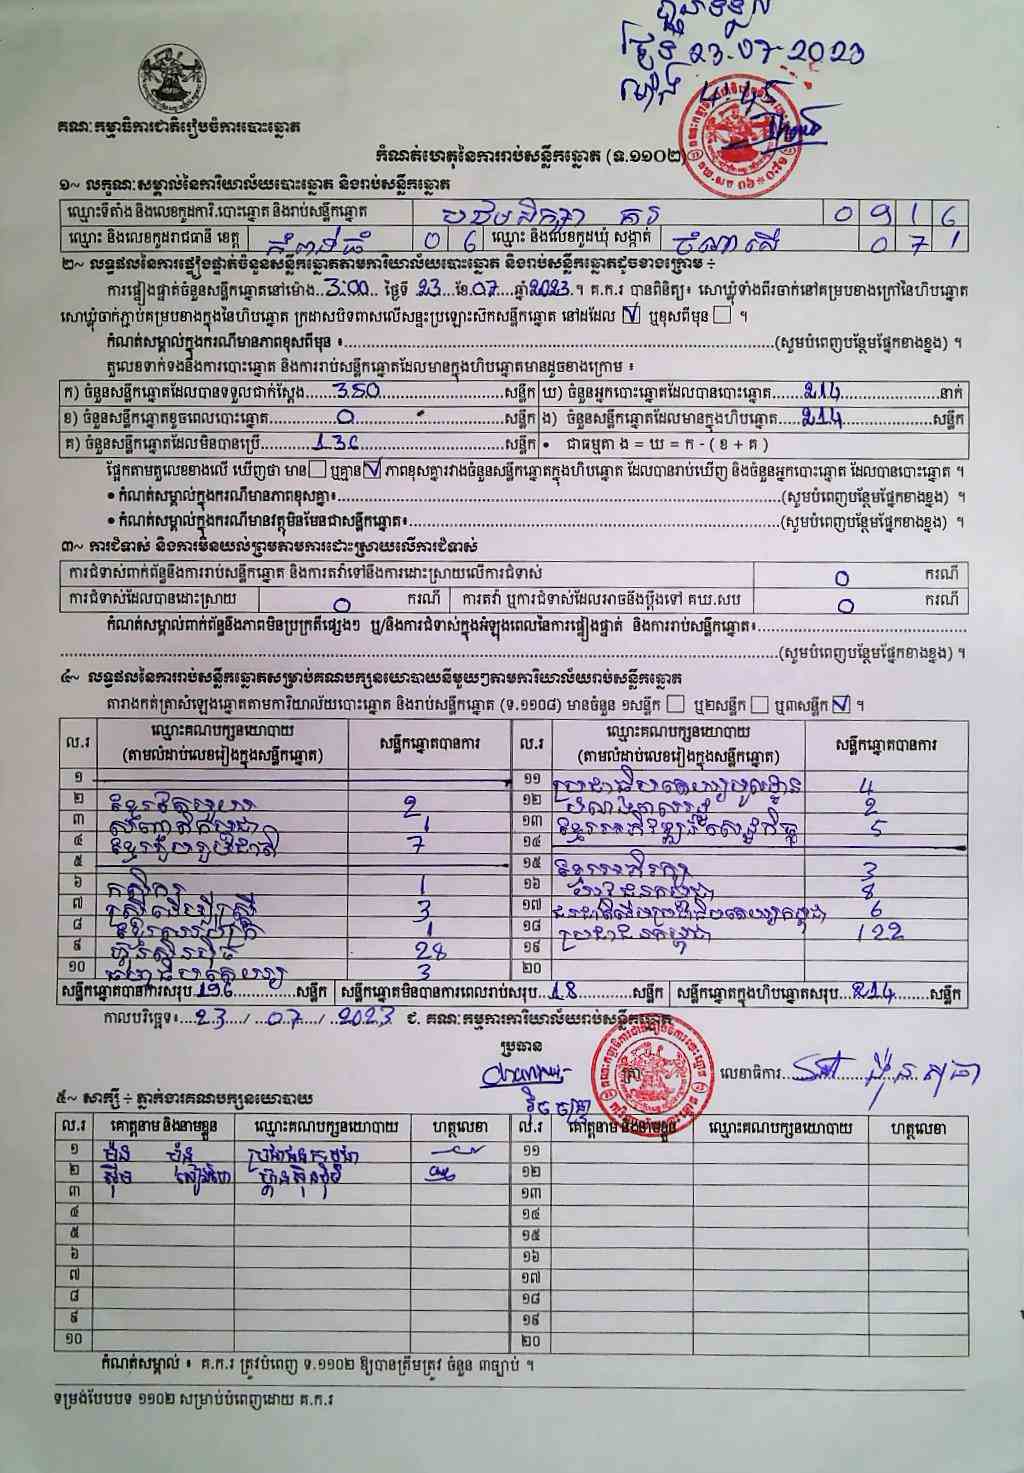 ថ្ងៃទី 23-07-2023
ម៉ោង 4:45
គណៈកម្មាធិការជាតិរៀបចំការបោះឆ្នោត
កំណត់ហេតុនៃការរាប់សន្លឹកឆ្នោត (ទ.១១០២)
១~ លក្ខណៈសម្គាល់នៃការិយាល័យបោះឆ្នោត និងរាប់សន្លឹកឆ្នោត
ឈ្មោះទីតាំង និងលេខកូដការិ.បោះឆ្នោត និងរាប់សន្លឹកឆ្នោត បឋមសិក្សា គរ 0 9 1 6
ឈ្មោះ និងលេខកូដរាជធានី ខេត្ត កំពង់ធំ 0 6 ឈ្មោះ និងលេខកូដឃុំ សង្កាត់ 0 7 1
២~ លទ្ធផលនៃការផ្ទៀងផ្ទាត់ចំនួនសន្លឹកឆ្នោតតាមការិយាល័យបោះឆ្នោត និងរាប់សន្លឹកឆ្នោតដូចខាងក្រោម ÷
ការផ្ទៀងផ្ទាត់ចំនួនសន្លឹកឆ្នោតនៅម៉ោង..3:00... ថ្ងៃទី 23...ខែ.07....ឆ្នាំ2023.។ គ.ក.រ បានពិនិត្យ៖ សោឃ្លុំទាំងពីរចាក់នៅគម្របខាងក្រៅនៃហិបឆ្នោត
សោឃ្លុំចាក់ភ្ជាប់គម្របខាងក្នុងនៃហិបឆ្នោត ក្រដាសបិទពាសលើសន្ទះប្រឡោះស៊កសន្លឹកឆ្នោត នៅដដែល ☑ ឬខុសពីមុន ☐ ។
កំណត់សម្គាល់ក្នុងករណីមានភាពខុសពីមុន ៖...(សូមបំពេញបន្ថែមផ្នែកខាងខ្នង) ។
តួលេខទាក់ទងនឹងការបោះឆ្នោត និងការរាប់សន្លឹកឆ្នោតដែលមានក្នុងហិបឆ្នោតមានដូចខាងក្រោម ៖
ក) ចំនួនសន្លឹកឆ្នោតដែលបានទទួលជាក់ស្តែង......350......សន្លឹក ឃ) ចំនួនអ្នកបោះឆ្នោតដែលបានបោះឆ្នោត......214......នាក់
ខ) ចំនួនសន្លឹកឆ្នោតខូចពេលបោះឆ្នោត......0......សន្លឹក ង) ចំនួនសន្លឹកឆ្នោតដែលមានក្នុងហិបឆ្នោត......214......សន្លឹក
គ) ចំនួនសន្លឹកឆ្នោតដែលមិនបានប្រើ......136......សន្លឹក • ជាធម្មតា ង = ឃ = ក - ( ខ + គ )
ផ្អែកតាមតួលេខខាងលើ ឃើញថា មាន ☐ ឬគ្មាន ☑ ភាពខុសគ្នារវាងចំនួនសន្លឹកឆ្នោតក្នុងហិបឆ្នោត ដែលបានរាប់ឃើញ និងចំនួនអ្នកបោះឆ្នោត ដែលបានបោះឆ្នោត ។
• កំណត់សម្គាល់ក្នុងករណីមានភាពខុសគ្នា៖...(សូមបំពេញបន្ថែមផ្នែកខាងខ្នង) ។
• កំណត់សម្គាល់ក្នុងករណីមានវត្ថុមិនមែនជាសន្លឹកឆ្នោត៖...(សូមបំពេញបន្ថែមផ្នែកខាងខ្នង) ។
៣~ ការជំទាស់ និងការមិនយល់ព្រមតាមការដោះស្រាយលើការជំទាស់
ការជំទាស់ពាក់ព័ន្ធនឹងការរាប់សន្លឹកឆ្នោត និងការតវ៉ាទៅនឹងការដោះស្រាយលើការជំទាស់ 0 ករណី
ការជំទាស់ដែលបានដោះស្រាយ 0 ករណី ការតវ៉ា ឬការជំទាស់ដែលអាចនឹងប្តឹងទៅ គឃ.សប 0 ករណី
កំណត់សម្គាល់ពាក់ព័ន្ធនឹងភាពមិនប្រក្រតីផ្សេងៗ ឬ/និងការជំទាស់ក្នុងអំឡុងពេលនៃការផ្ទៀងផ្ទាត់ និងការរាប់សន្លឹកឆ្នោត៖...
...(សូមបំពេញបន្ថែមផ្នែកខាងខ្នង) ។
៤~ លទ្ធផលនៃការរាប់សន្លឹកឆ្នោតសម្រាប់គណបក្សនយោបាយនីមួយៗតាមការិយាល័យរាប់សន្លឹកឆ្នោត
តារាងកត់ត្រាសំឡេងឆ្នោតតាមការិយាល័យបោះឆ្នោត និងរាប់សន្លឹកឆ្នោត (ទ.១១០៨) មានចំនួន ១សន្លឹក ☐ ឬ២សន្លឹក ☐ ឬ៣សន្លឹក ☑ ។
ល.រ ឈ្មោះគណបក្សនយោបាយ (តាមលំដាប់លេខរៀងក្នុងសន្លឹកឆ្នោត) សន្លឹកឆ្នោតបានការ ល.រ ឈ្មោះគណបក្សនយោបាយ (តាមលំដាប់លេខរៀងក្នុងសន្លឹកឆ្នោត) សន្លឹកឆ្នោតបានការ
១ ១១ ប្រជាធិបតេយ្យមូលដ្ឋាន 4
២ 2 ១២ 2
៣ 1 ១៣ ខ្មែរអភិវឌ្ឍន៍សេដ្ឋកិច្ច 5
៤ ខ្មែររួបរួមជាតិ 7 ១៤
៥ ១៥ ខ្មែរអភិរក្ស 3
៦ កសិករ 1 ១៦ 8
៧ ស្រ្តីដើម្បីស្រ្តី 3 ១៧ ជនជាតិដើមប្រជាធិបតេយ្យកម្ពុជា 6
៨ 1 ១៨ ប្រជាជនកម្ពុជា 122
៩ ហ៊្វុនស៊ិនប៉ិច 28 ១៩
១០ 3 ២០
សន្លឹកឆ្នោតបានការសរុប..196......សន្លឹក សន្លឹកឆ្នោតមិនបានការពេលរាប់សរុប...18......សន្លឹក សន្លឹកឆ្នោតក្នុងហិបឆ្នោតសរុប...214......សន្លឹក
កាលបរិច្ឆេទ៖...23..../...07..../...2023. ជ. គណៈកម្មការការិយាល័យរាប់សន្លឹកឆ្នោត
ប្រធាន
ត្រា លេខាធិការ......
៥~ សាក្សី ÷ ភ្នាក់ងារគណបក្សនយោបាយ
ល.រ គោត្តនាម និងនាមខ្លួន ឈ្មោះគណបក្សនយោបាយ ហត្ថលេខា ល.រ គោត្តនាម និងនាមខ្លួន ឈ្មោះគណបក្សនយោបាយ ហត្ថលេខា
១ ប្រជាជនកម្ពុជា ១១
២ ហ៊្វុនស៊ិនប៉ិច ១២
៣ ១៣
៤ ១៤
៥ ១៥
៦ ១៦
៧ ១៧
៨ ១៨
៩ ១៩
១០ ២០
កំណត់សម្គាល់ ៖ គ.ក.រ ត្រូវបំពេញ ទ.១១០២ ឱ្យបានត្រឹមត្រូវ ចំនួន ៣ច្បាប់ ។
ទម្រង់បែបបទ ១១០២ សម្រាប់បំពេញដោយ គ.ក.រ